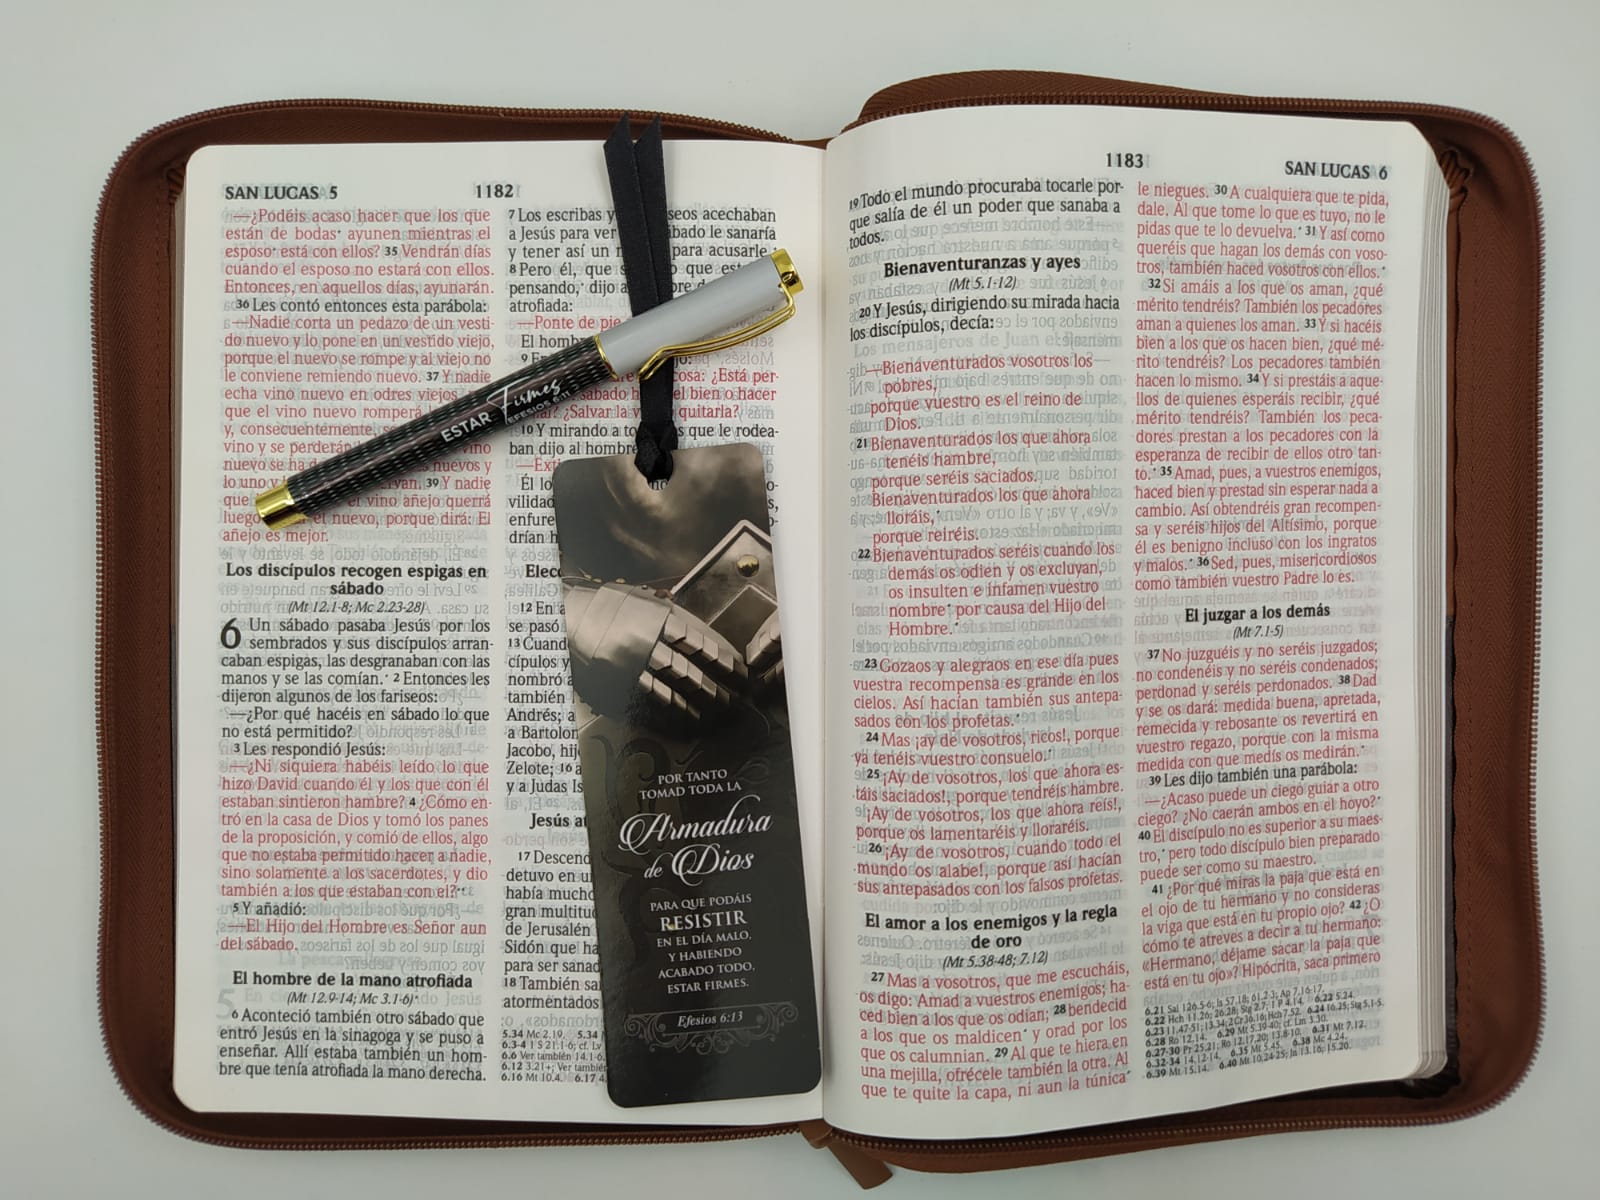 SAN LUCAS 5
1182
—¿Podéis acaso hacer que los que
están de bodas* ayunen mientras el
esposo* está con ellos? 35 Vendrán días
cuando el esposo no estará con ellos.
Entonces, en aquellos días, ayunarán.
36 Les contó entonces esta parábola:
—Nadie corta un pedazo de un vesti-
do nuevo y lo pone en un vestido viejo,
porque el nuevo se rompe y al viejo no
le conviene remiendo nuevo. 37 Y nadie
echa vino nuevo en odres viejos,
que el vino nuevo romperá
y, consecuentemente,
vino y se perderán vino
nuevo se ha nuevos y
lo uno y 39 Y nadie
que el vino añejo querrá
luego el nuevo, porque dirá: El
añejo es mejor.
Los discípulos recogen espigas en
sábado
(Mt 12.1-8; Mc 2.23-28)
6 Un sábado pasaba Jesús por los
sembrados y sus discípulos arran-
caban espigas, las desgranaban con las
manos y se las comían.* 2 Entonces les
dijeron algunos de los fariseos:
—¿Por qué hacéis en sábado lo que
no está permitido?
3 Les respondió Jesús:
—¿Ni siquiera habéis leído lo que
hizo David cuando él y los que con él
estaban sintieron hambre? 4 ¿Cómo en-
tró en la casa de Dios y tomó los panes
de la proposición, y comió de ellos, algo
que no estaba permitido hacer a nadie,
sino solamente a los sacerdotes, y dio
también a los que estaban con el?**
5 Y añadió:
—El Hijo del Hombre es Señor aun
del sábado.
El hombre de la mano atrofiada
(Mt 12.9-14; Mc 3.1-6)*
6 Aconteció también otro sábado que
entró Jesús en la sinagoga y se puso a
enseñar. Allí estaba también un hom-
bre que tenía atrofiada la mano derecha.
7 Los escribas y seos acechaban
a Jesús para ver bado le sanaría
y tener así un para acusarle.*
8 Pero él, que que
pensando,* dijo a
atrofiada:
—Ponte de pie
El homb
9
cosa: ¿Está per-
sábado h el bien o hacer
¿Salvar la quitarla?
10 Y mirando a to s que le rodea-
ban dijo al hombre
El lo
vilidad
enfure
drían h
12 En a
se pasó
13 Cuand
cípulos y
nombró a
también
Andrés; a
a Bartolon
Jacobo, hij
Zelote; 16 a
y a Judas Is
Jesús at
17 Descend
detuvo en u
había mucho
gran multitud
de Jerusalén
Sidón que ha
para ser sanad
18 También sa
atormentados
5.34 Mc 2.19. 5.34
6.3-4 1 S 21.1-6; cf. Lv
6.6 Ver también 14.1-6.
6.12 3.21+; Ver también
6.16 Mt 10.4. 6.17 4.
ESTAR Firmes
EFESIOS 6:11
POR TANTO
TOMAD TODA LA
Armadura
de Dios
PARA QUE PODÁIS
RESISTIR
EN EL DÍA MALO,
Y HABIENDO
ACABADO TODO,
ESTAR FIRMES.
Efesios 6:13
1183
SAN LUCAS 6
19 Todo el mundo procuraba tocarle por-
que salía de él un poder que sanaba a
todos.
Bienaventuranzas y ayes
(Mt 5.1-12)
20 Y Jesús, dirigiendo su mirada hacia
los discípulos, decía:
—Bienaventurados vosotros los
pobres,
porque vuestro es el reino de
Dios.
21 Bienaventurados los que ahora
tenéis hambre,
porque seréis saciados.
Bienaventurados los que ahora
lloráis,*
porque reiréis.
22 Bienaventurados seréis cuando los
demás os odien y os excluyan,*
os insulten e infamen vuestro
nombre* por causa del Hijo del
Hombre.*
23 Gozaos y alegraos en ese día pues
vuestra recompensa es grande en los
cielos. Así hacían también sus antepa-
sados con los profetas.*
24 Mas ¡ay de vosotros, ricos!, porque
ya tenéis vuestro consuelo.*
25 ¡Ay de vosotros, los que ahora es-
táis saciados!, porque tendréis hambre.
¡Ay de vosotros, los que ahora reís!,
porque os lamentaréis y lloraréis.
26 ¡Ay de vosotros, cuando todo el
mundo os alabe!, porque así hacían
sus antepasados con los falsos profetas.
El amor a los enemigos y la regla
de oro
(Mt 5.38-48; 7.12)
27 Mas a vosotros, que me escucháis,
os digo: Amad a vuestros enemigos; ha-
ced bien a los que os odian; 28 bendecid
a los que os maldicen* y orad por los
que os calumnian. 29 Al que te hiera en
una mejilla, ofrécele también la otra. Al
que te quite la capa, ni aun la túnica*
le niegues. 30 A cualquiera que te pida,
dale. Al que tome lo que es tuyo, no le
pidas que te lo devuelva.* 31 Y así como
queréis que hagan los demás con voso-
tros, también haced vosotros con ellos.*
32 Si amáis a los que os aman, ¿qué
mérito tendréis? También los pecadores
aman a quienes los aman. 33 Y si hacéis
bien a los que os hacen bien, ¿qué mé-
rito tendréis? Los pecadores también
hacen lo mismo. 34 Y si prestáis a aque-
llos de quienes esperáis recibir, ¿qué
mérito tendréis? También los peca-
dores prestan a los pecadores con la
esperanza de recibir de ellos otro tan-
to.* 35 Amad, pues, a vuestros enemigos,
haced bien y prestad sin esperar nada a
cambio. Así obtendréis gran recompen-
sa y seréis hijos del Altísimo, porque
él es benigno incluso con los ingratos
y malos.* 36 Sed, pues, misericordiosos
como también vuestro Padre lo es.
El juzgar a los demás
(Mt 7.1-5)
37 No juzguéis y no seréis juzgados;
no condenéis y no seréis condenados;
perdonad y seréis perdonados. 38 Dad
y se os dará: medida buena, apretada,
remecida y rebosante os revertirá en
vuestro regazo, porque con la misma
medida con que medís os medirán.*
39 Les dijo también una parábola:
—¿Acaso puede un ciego guiar a otro
ciego? ¿No caerán ambos en el hoyo?*
40 El discípulo no es superior a su maes-
tro,* pero todo discípulo bien preparado
puede ser como su maestro.
41 ¿Por qué miras la paja que está en
el ojo de tu hermano y no consideras
la viga que está en tu propio ojo? 42 ¿O
cómo te atreves a decir a tu hermano:
«Hermano, déjame sacar la paja que
está en tu ojo»? Hipócrita, saca primero
6.21 Sal 126.5-6; Is 57.18; 61.2-3; Ap 7.16-17.
6.22 5.24.
6.22 Hch 11.26; 26.28; Stg 2.7; 1 P 4.14.
6.28 Ro 12.14. 6.29 Mt 5.39-40; cf. Lm 3.30.
6.31 Mt 7.12.
6.32-34 14.12-14. 6.35 Mt 5.45. 6.38 Mc 4.24.
6.39 Mt 15.14. 6.40 Mt 10.24-25; Jn 13.16; 15.20.